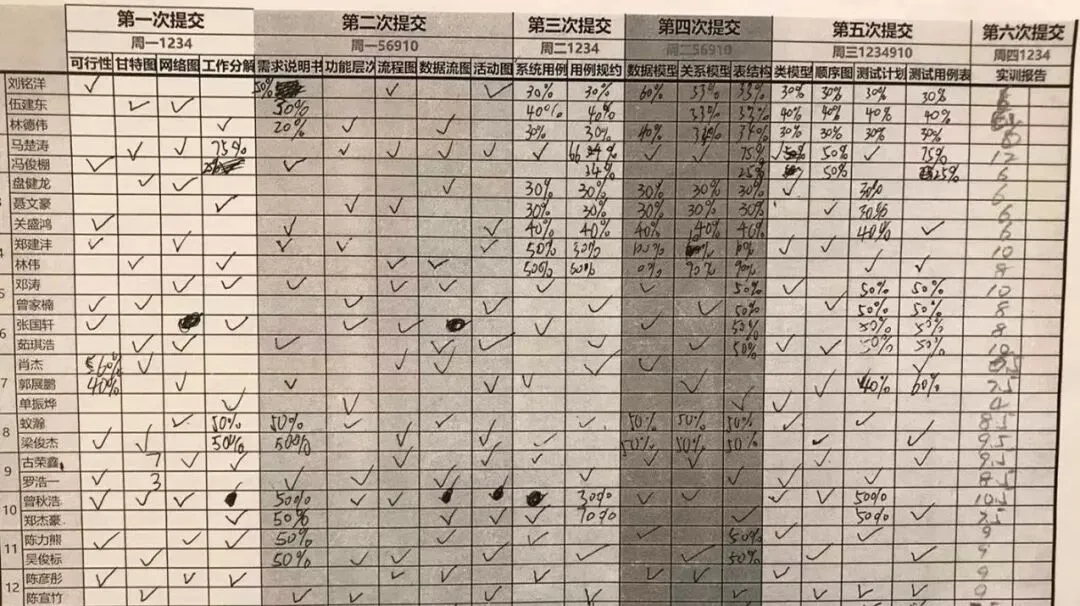 第一次提交 第二次提交 第三次提交 第四次提交 第五次提交 第六次提交
周一1234 周一56910 周二1234 周二56910 周三1234910 周四1234
可行性 甘特图 网络图 工作分解 需求说明书 功能层次 流程图 数据流图 活动图 系统用例 用例规约 数据模型 关系模型 表结构 类模型 顺序图 测试计划 测试用例表 实训报告
刘铭洋 ✓ 50% ✓ ✓ 30% 30% 60% 33% 33% 30% 30% 30% 30%
伍建东 ✓ ✓ 30% 40% 40% 33% 33% 40% 40% 40% 40%
林德伟 ✓ 20% ✓ ✓ 30% 30% 40% 34% 34% 30% 30% 30% 30%
马楚涛 ✓ ✓ ✓ 75% ✓ ✓ ✓ ✓ ✓ 66% ✓ ✓ 75% ✓ 50% ✓ 75% 12
冯俊棚 ✓ ✓ 34% 25% 50% 25% 6
盘健龙 ✓ ✓ ✓ 30% 30% 30% 30% 30% ✓ 30% 6
聂文豪 ✓ ✓ ✓ 30% 30% 30% 30% 30% ✓ 30% 6
关盛鸿 ✓ ✓ ✓ 40% 40% 40% 40% 40% 40% ✓ 6
4 郑建沣 ✓ ✓ ✓ ✓ ✓ 50% 50% ✓ ✓ 10
林伟 ✓ ✓ ✓ ✓ 50% 50% 90% 90% ✓ ✓ 8
5 邓涛 ✓ ✓ ✓ ✓ ✓ ✓ ✓ 50% ✓ 50% 50% 10
曾家楠 ✓ ✓ ✓ ✓ ✓ ✓ 50% ✓ 50% 50% 8
6 张国轩 ✓ ✓ ✓ ✓ ✓ ✓ 50% 50% 50% 8
茹琪浩 ✓ ✓ ✓ ✓ ✓ ✓ ✓ 50% ✓ ✓ 50% 50% 10
肖杰 60% ✓ ✓ ✓ ✓ ✓ ✓
7 郭展鹏 40% ✓ ✓ ✓ ✓ ✓ ✓ 40% 60% 7.5
单振烨 ✓ ✓ ✓ ✓ 4
8 蚁瀚 ✓ 50% 50% ✓ ✓ ✓ ✓ 50% 50% 50% ✓ ✓ 8.5
梁俊杰 ✓ ✓ 50% 50% ✓ ✓ ✓ 50% 50% 50% ✓ ✓ 9.5
9 古荣鑫 7 ✓ ✓ ✓ ✓ ✓ ✓ ✓ ✓ ✓ 9.5
罗浩一 ✓ 3 ✓ ✓ ✓ ✓ ✓ ✓ ✓ ✓ 8.5
10 曾秋浩 ✓ ✓ ✓ 50% ✓ ✓ 30% ✓ ✓ ✓ ✓ 50% ✓ 10.5
郑杰豪 ✓ 50% ✓ ✓ ✓ 70% ✓ 50% ✓ 7.5
11 陈力熊 ✓ ✓ ✓ 50% ✓ ✓ ✓ 50% ✓ ✓ 9
吴俊标 ✓ 50% ✓ ✓ ✓ ✓ ✓ 50% ✓ ✓ 9
12 陈彦彤 ✓ ✓ ✓ ✓ ✓ ✓ ✓ ✓ ✓ ✓ 9
陈宣竹 ✓ ✓ ✓ ✓ ✓ ✓ ✓ ✓ ✓ 9